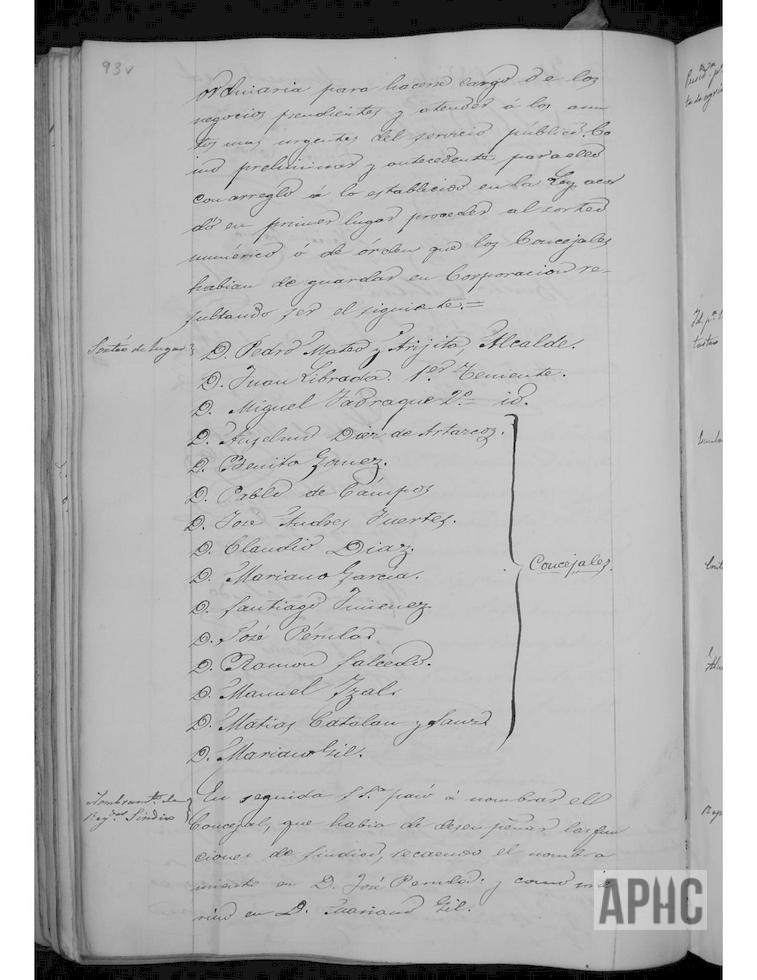 93v
ordinaria para hacerse cargo de los
negocios pendientes y atender á los asun
tos mas urgentes del servicio público. Co
mo preliminar y antecedente para ello
con arreglo á lo establecido en la Ley, acor
dó en primer lugar proceder al sorteo
numérico ó de órden que los Concejales
habian de guardar en Corporacion re-
sultando ser el siguiente.=
Sorteo de lugar
D. Pedro Mateo y Arijita Alcalde.
D. Juan Librada. 1er Teniente.
D. Miguel Jadraque 2º = id.
D. Anselmo Diaz de Artazcoz.
D. Benito Gomez.
D. Pablo de Cámpos
D. José Andres Fuertes.
D. Claudio Diaz.
D. Mariano García.
D. Santiago Jimenez
D. José Pérula
D. Ramon Salcedo.
D. Manuel Yzal.
D. Matias Catalan y Sanz
D. Mariano Gil.
Concejales.
Nombramto. de
Regor Sindico
En seguida S.Sa. pasó á nombrar el
Concejal, que habia de desempeñar las fun
ciones de Sindico, recaendo el nombra
miento en D. José Perula. y como inte
rino en D. Mariano Gil.
APHC